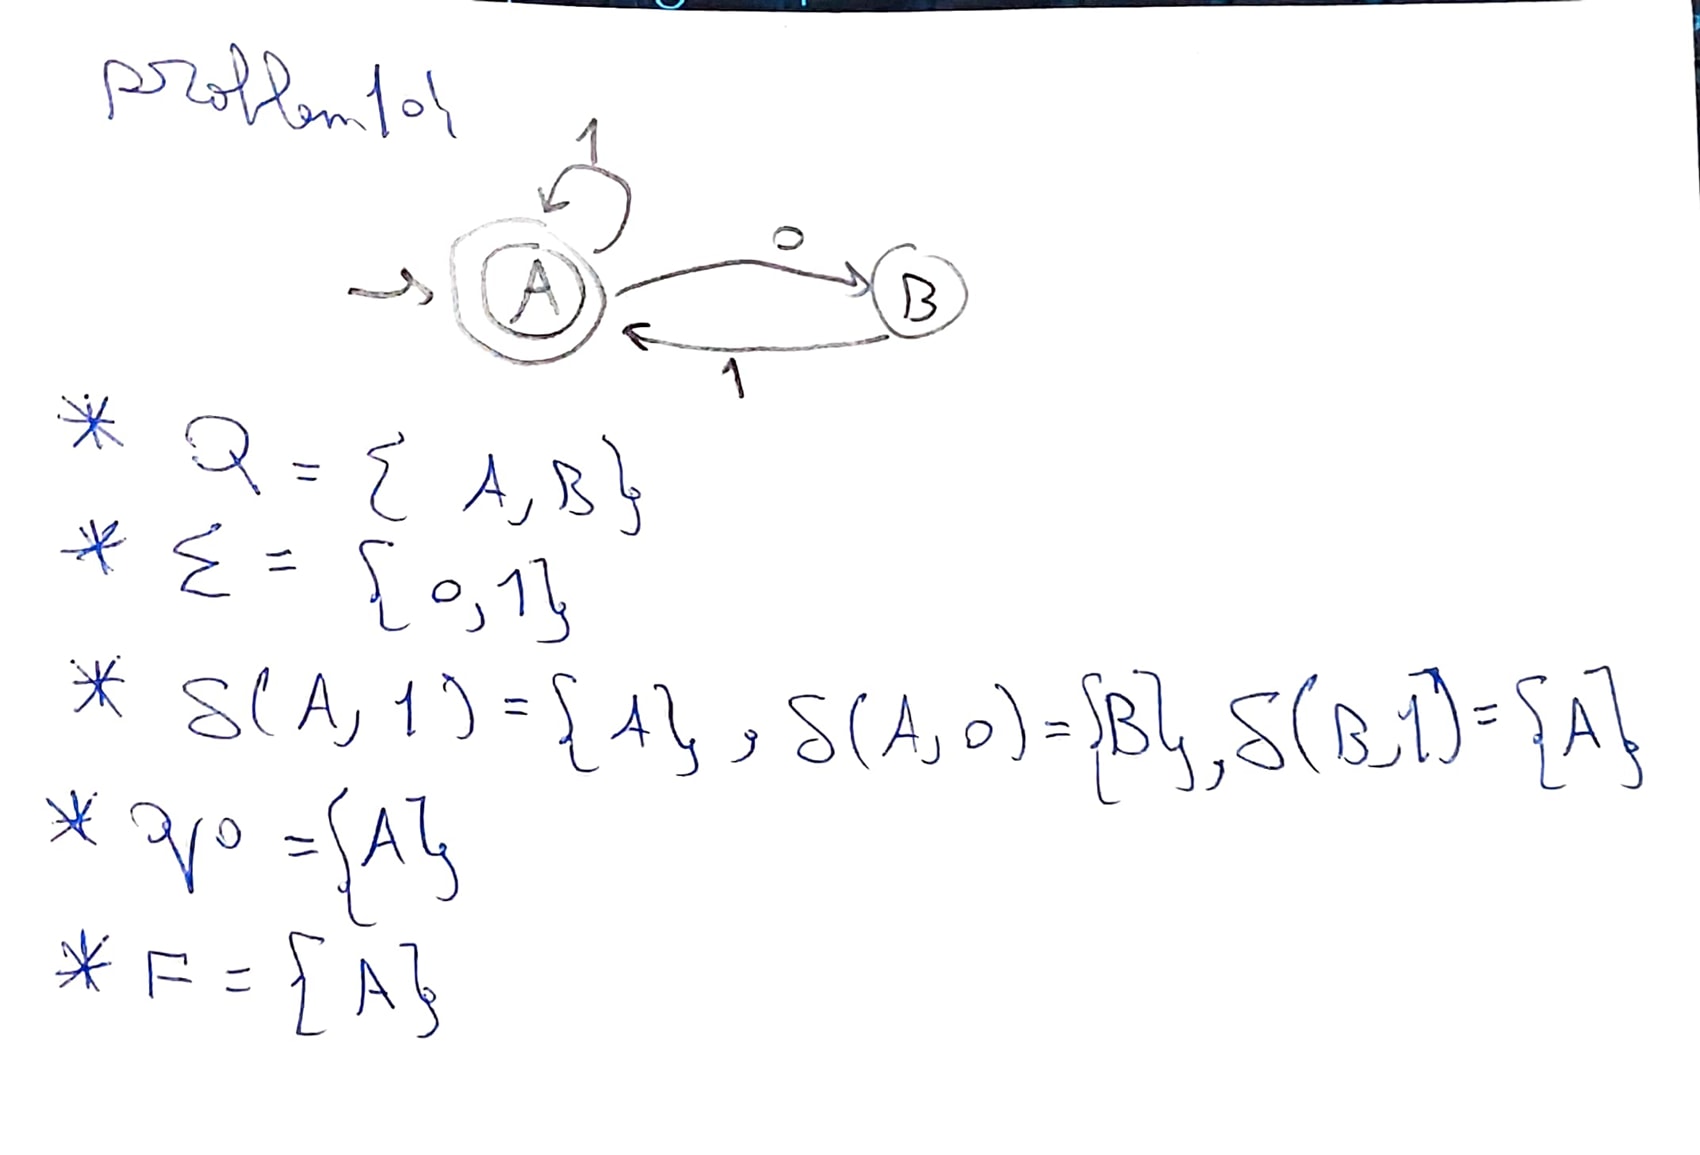 problem 101
1
A 0 B
1
* Q = { A, B}
* Σ = {0,1}
* δ(A, 1) = {A}, δ(A, 0) = {B}, δ(B,1) = {A}
* q0 = {A}
* F = {A}